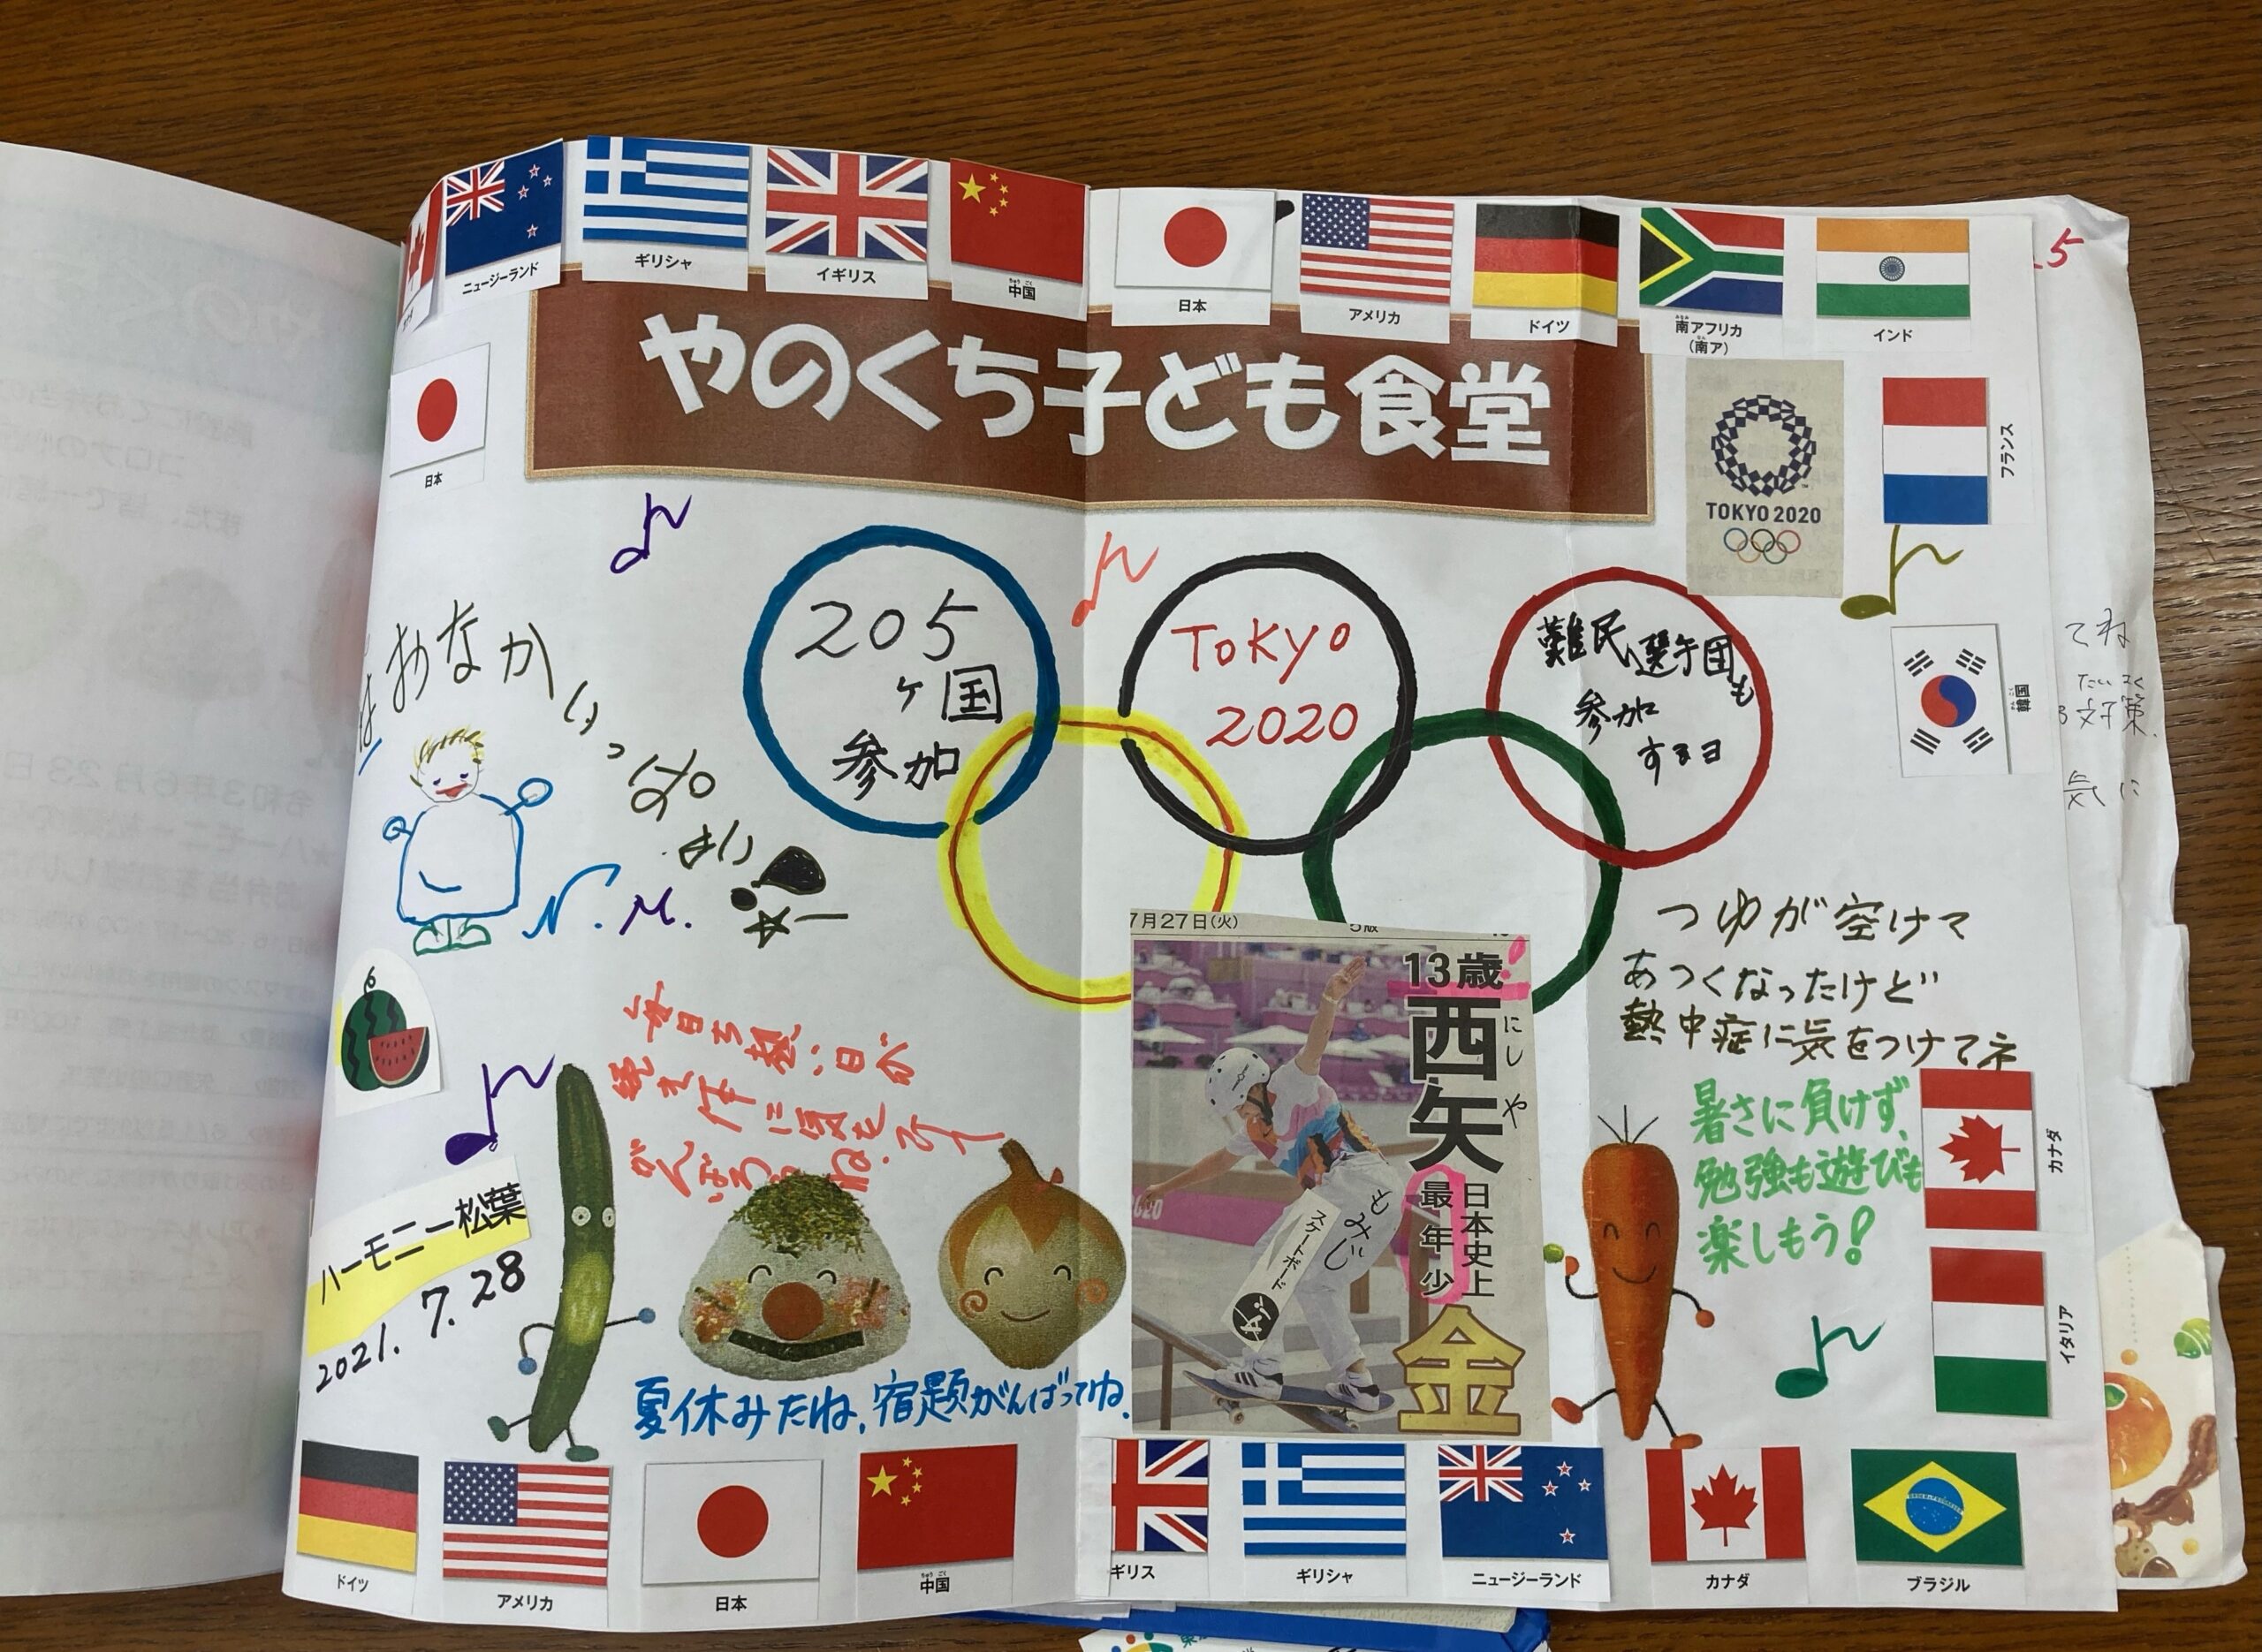 ニュージーランド
ギリシャ
イギリス
ちゅうごく
中国
日本
アメリカ
ドイツ
みなみ
南アフリカ
なん
(南ア)
インド
5
やのくち子ども食堂
日本
TOKYO 2020
フランス
205
ヶ国
参加
TOKYO
2020
難民選手団も
参加
するヨ
韓国
おなか
いっぱい
N.M.
てね
対策
気に
7月27日(火)
5版
13歳
西矢
にしや
日本史上
最年少
金
もみじ
スケートボード
つゆが空けて
あつくなったけど
熱中症に気をつけてネ
暑さに負けず、
勉強も遊びも
楽しもう!
カナダ
イタリア
毎日お熱い日が
がんばろうね。
ハーモニー松葉
2021. 7. 28
夏休みだね、宿題がんばってね。
ドイツ
アメリカ
日本
ちゅうごく
中国
ギリス
ギリシャ
ニュージーランド
カナダ
ブラジル